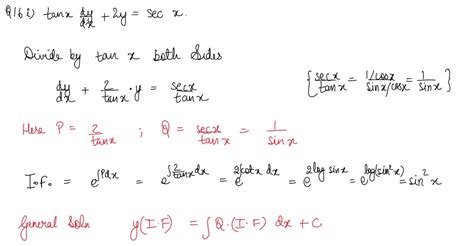 Q16 i) tanx dy/dx + 2y = sec x.
Divide by tan x both sides
dy/dx + 2/tanx · y = secx/tanx { secx/tanx = 1/cosx / sinx/cosx = 1/sinx }
Here P = 2/tanx ; Q = secx/tanx = 1/sinx
I.f. = e^∫Pdx = e^∫2/tanx dx = e^2∫cotx dx = e^2log sinx = e^log(sin²x) = sin²x
General Soln y(I.F) = ∫Q·(I.F) dx + C